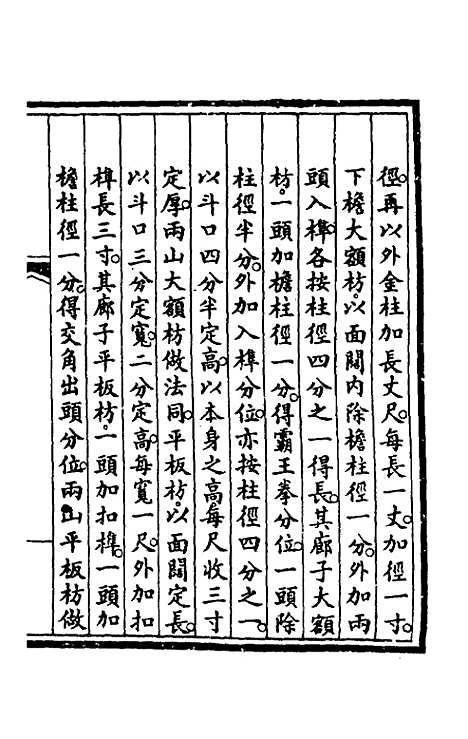 徑。再以外金柱加長丈尺。每長一丈。加徑一寸。
下檐大額枋。以面闊內除檐柱徑一分。外加兩
頭入榫。各按柱徑四分之一得長。其廊子大額
枋。一頭加檐柱徑一分。得霸王拳分位。一頭除
柱徑半分。外加入榫分位。亦按柱徑四分之一。
以斗口四分半定高。以本身之高每尺收三寸
定厚。兩山大額枋做法同。平板枋。以面闊定長。
以斗口三分定寬。二分定高。每寬一尺。外加扣
榫長三寸。其廊子平板枋。一頭加扣榫。一頭加
檐柱徑一分。得交角出頭分位。兩山平板枋做